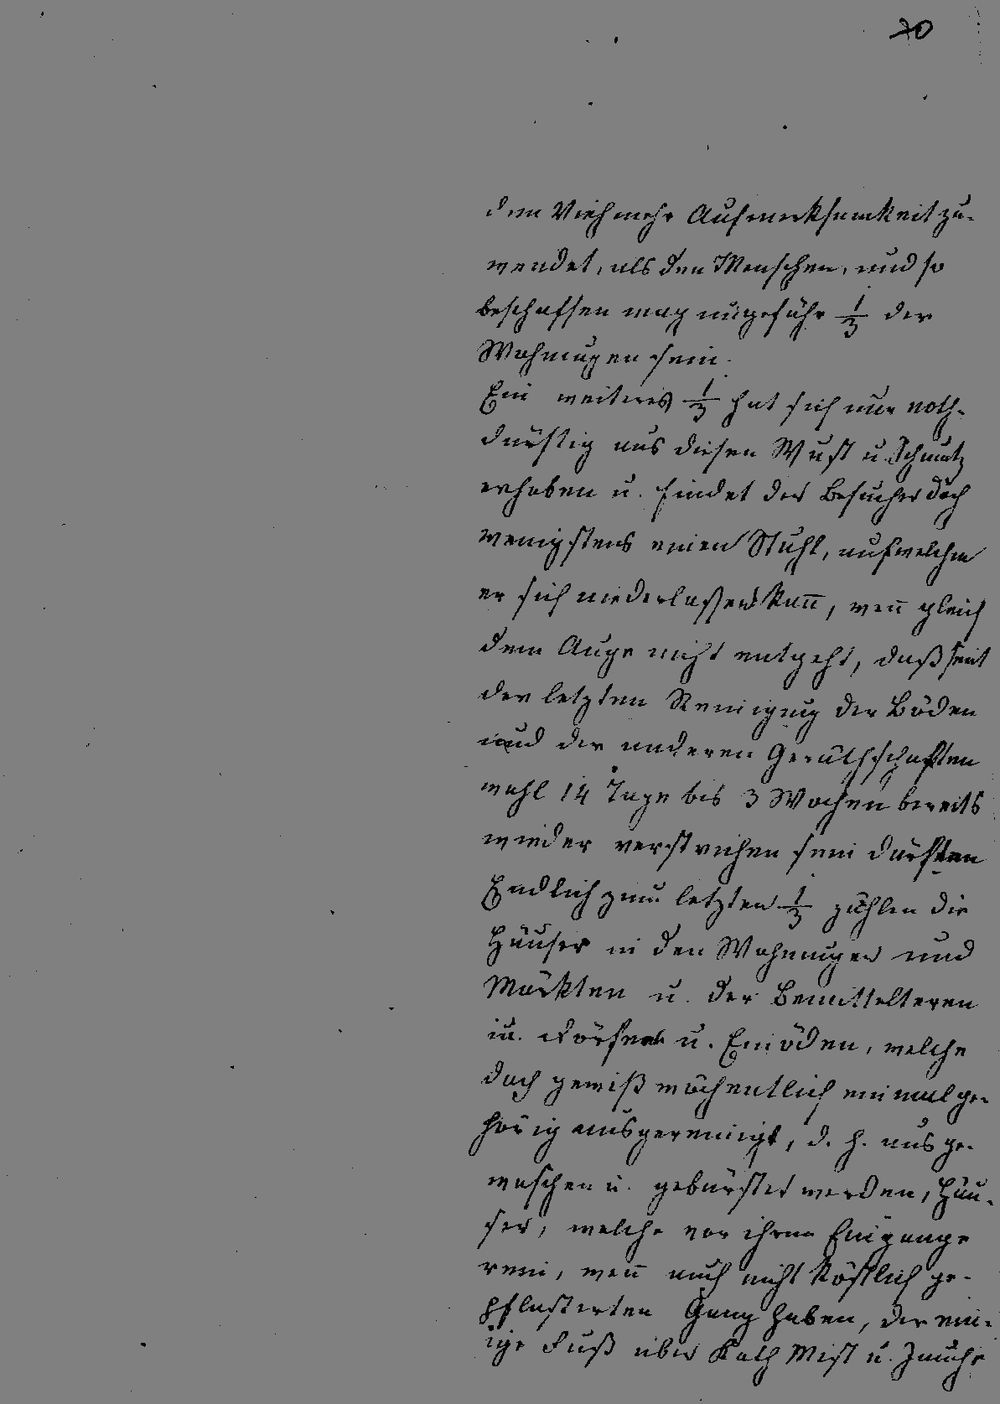 20
dem Vieh mehr Aufmerksamkeit zu-
wendet, als den Menschen, und so
beschaffen mag ungefähr 1/3 der
Wohnungen sein.
Ein weiteres 1/3 hat sich nur noth-
dürftig aus diesen Wust u. Schmutz
erhoben u. findet der Besucher doch
wenigstens einen Stuhl, auf welchem
er sich niederlassen kan̄, wen̄ gleich
dem Auge nicht entgeht, daß seit
der letzten Reinigung der Böden
und der anderen Geräthschaften
wohl 14 Tage bis 3 Wochen bereits
wieder verstrichen sein dürften
Endlich zum letzten 1/3 zählen die
Häuser in den Wohnungen und
Märkten u. der Bemittelteren
in Dörfern u. Einöden, welche
doch gewiß wöchentlich einmal ge-
hörig ausgereinigt, d. h. ausge-
waschen u. gebürstet werden, Häu-
ser, welche vor ihrem Eingange
rein, wen̄ auch nicht köstlich ge-
pflasterten Gang haben, der ein-
ige Fuß über Koth Mist u. Jauche